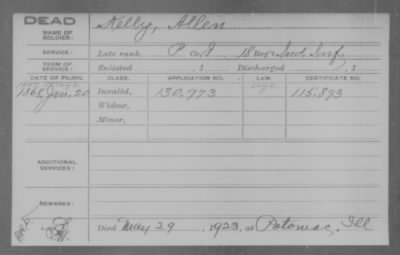 DEAD
NAME OF SOLDIER: Kelly, Allen
SERVICE: Late rank, P Co. I, 18 Reg't Ind. Inf.
TERM OF SERVICE: Enlisted , 1 Discharged , 1
DATE OF FILING. CLASS. APPLICATION NO. LAW. CERTIFICATE NO.
1868, Jan. 20 Invalid, 130.973 115.893
Widow,
Minor,
ADDITIONAL SERVICES:
REMARKS:
Died May 29, 1923, at Potomac, Ill